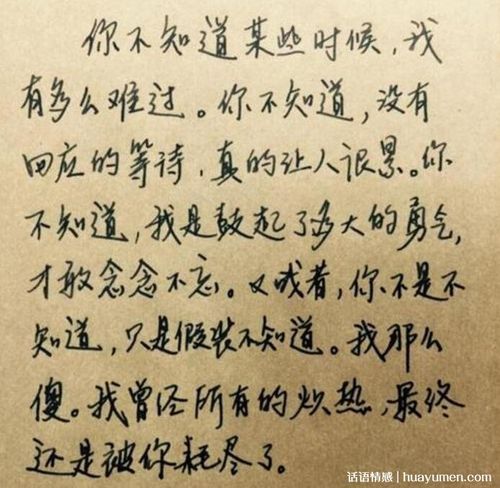 你不知道某些时候，我
有多么难过。你不知道，没有
回应的等待，真的让人很累。你
不知道，我是鼓起了多大的勇气，
才敢念念不忘。又或者，你不是不
知道，只是假装不知道。我那么
傻。我曾经所有的炽热，最终
还是被你耗尽了。
话语情感 | huayumen.com